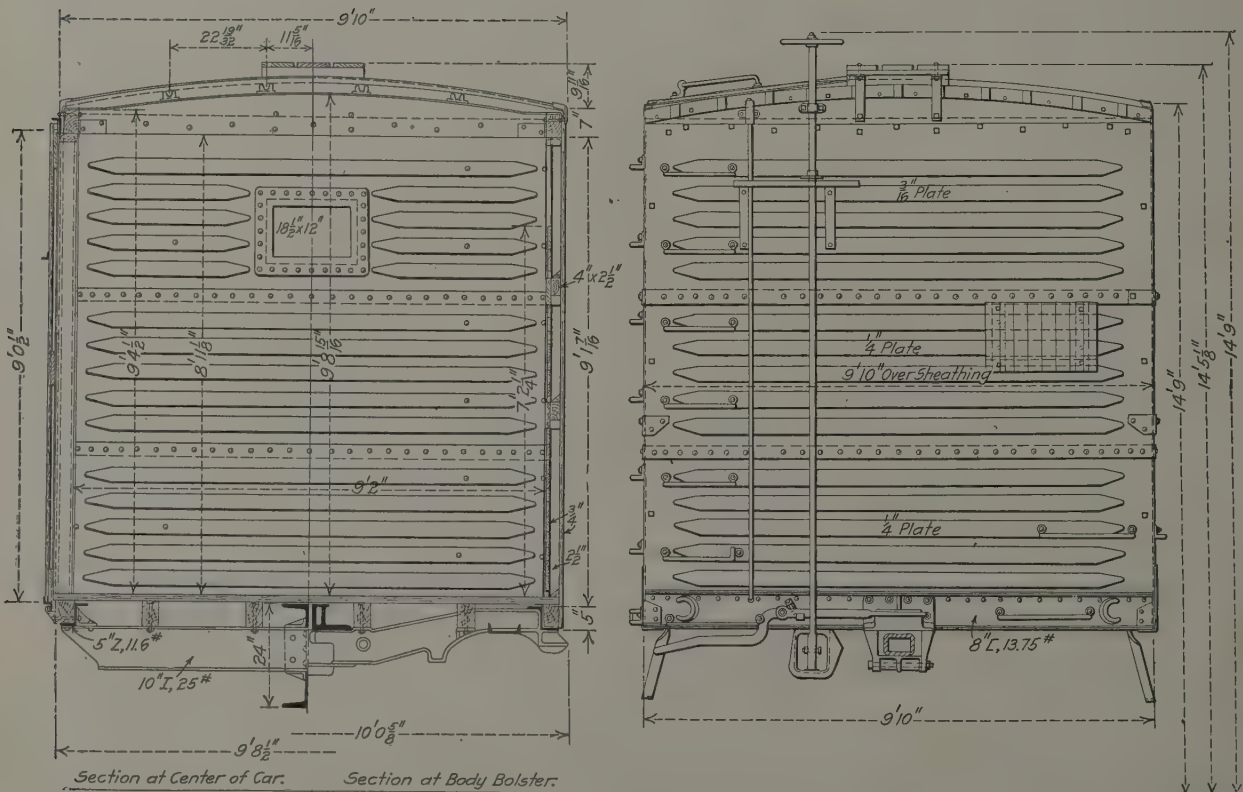 9'10"
22 19/32"
11 5/16"
9 11/16"
7"
9'0 1/2"
9'4 1/2"
8'11 1/8"
9'8 15/16"
18 1/2" x 12"
7'2 1/4"
4" x 2 1/2"
9'1 7/16"
9'2"
3/4"
2 1/2"
5"
5" Z, 11.6#
10" I, 25#
24"
10'0 5/8"
9'8 1/2"
Section at Center of Car.
Section at Body Bolster.
3/16" Plate
1/4" Plate
9'10" Over Sheathing
1/4" Plate
8" I, 13.75#
9'10"
14'9"
14'5 1/8"
14'9"